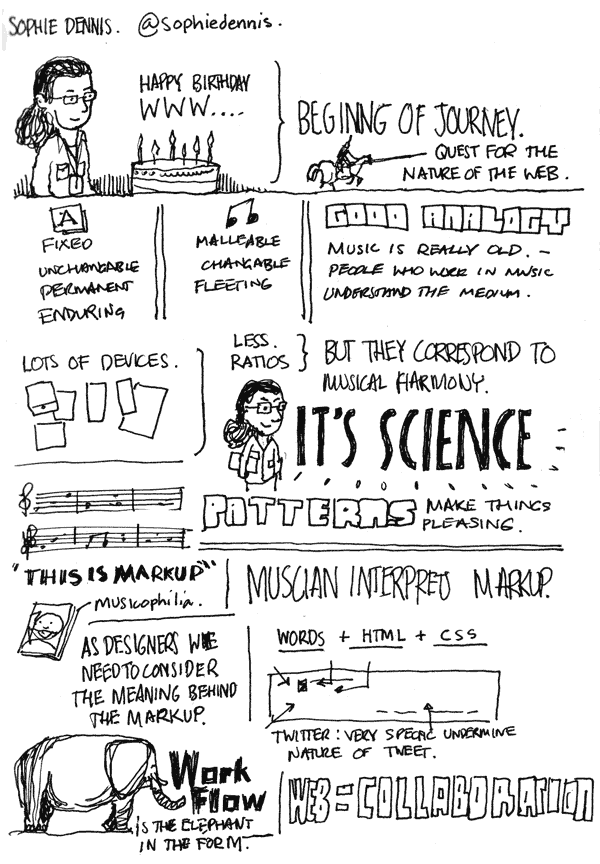 SOPHIE DENNIS. @sophiedennis.
HAPPY BIRTHDAY
WWW....
BEGINNG OF JOURNEY.
QUEST FOR THE
NATURE OF THE WEB.
A
FIXED
UNCHANGABLE
PERMANENT
ENDURING
MALLEABLE
CHANGABLE
FLEETING
GOOD ANALOGY
MUSIC IS REALLY OLD. -
PEOPLE WHO WORK IN MUSIC
UNDERSTAND THE MEDIUM.
LOTS OF DEVICES.
LESS.
RATIOS
BUT THEY CORRESPOND TO
MUSICAL HARMONY.
IT'S SCIENCE
PATTERNS MAKE THINGS
PLEASING.
"THIS IS MARKUP"
musicophilia.
MUSCIAN INTERPRETS MARKUP.
AS DESIGNERS WE
NEED TO CONSIDER
THE MEANING BEHIND
THE MARKUP.
WORDS + HTML + CSS
TWITTER: VERY SPECIFIC UNDERMINE
NATURE OF TWEET.
Work
Flow
IS THE ELEPHANT
IN THE FORM.
WEB = COLLABORATION